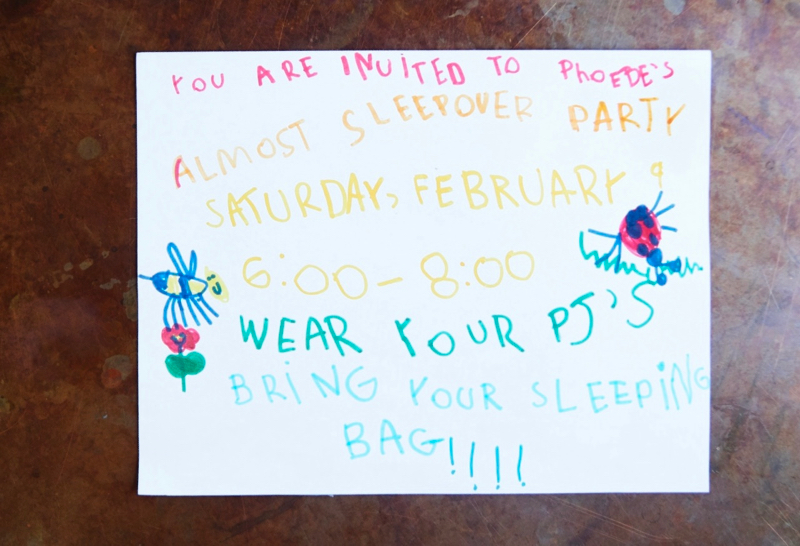 YOU ARE INVITED TO PHOEBE'S
ALMOST SLEEPOVER PARTY
SATURDAY, FEBRUARY 9
6:00 - 8:00
WEAR YOUR PJ'S
BRING YOUR SLEEPING
BAG!!!!!